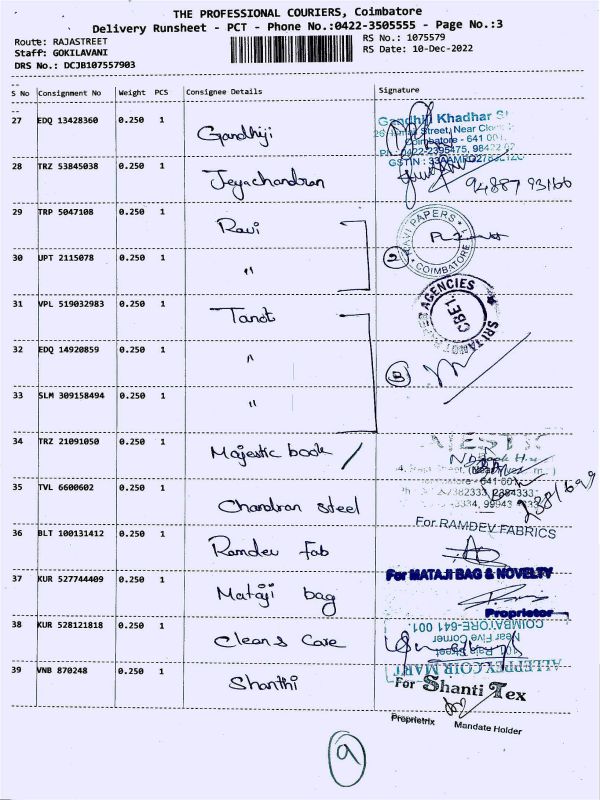 THE PROFESSIONAL COURIERS, Coimbatore
Delivery Runsheet - PCT - Phone No.:0422-3505555 - Page No.:3
Route: RAJASTREET
Staff: GOKILAVANI
DRS No.: DCJB107557903
RS No.: 1075579
RS Date: 10-Dec-2022
S No Consignment No Weight PCS Consignee Details Signature
27 EDQ 13428360 0.250 1 Gandhiji
Gandhiji Khadhar
Street, Near
Coimbatore - 641 001
28 TRZ 53845038 0.250 1 Jeyachandran
94887 93166
29 TRP 5047108 0.250 1 Ravi
RAVI PAPERS
COIMBATORE
30 UPT 2115078 0.250 1 "
31 VPL 519032983 0.250 1 Tanot
SRI TANOT AGENCIES
CBE1.
32 EDQ 14920859 0.250 1 "
3
33 SLM 309158494 0.250 1 "
34 TRZ 21091050 0.250 1 Majestic book
35 TVL 6600602 0.250 1 Chandran steel
2381699
For RAMDEV FABRICS
36 BLT 100131412 0.250 1 Ramdev fab
For MATAJI BAG & NOVELTY
37 KUR 527744409 0.250 1 Mataji bag
Proprietor
38 KUR 528121818 0.250 1 Clean & Care
ALLEPPEY COIR MART
101, Raja Street
Near Five Corner
COIMBATORE-641 001.
39 VNB 870248 0.250 1 Shanthi
For Shanti Tex
Proprietrix Mandate Holder
9